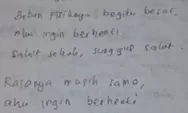 Beban pikiranya begitu besar,
aku ingin berhenti
Salut sekali, sungguh salut.
Rasanya masih sama,
aku ingin berhenti